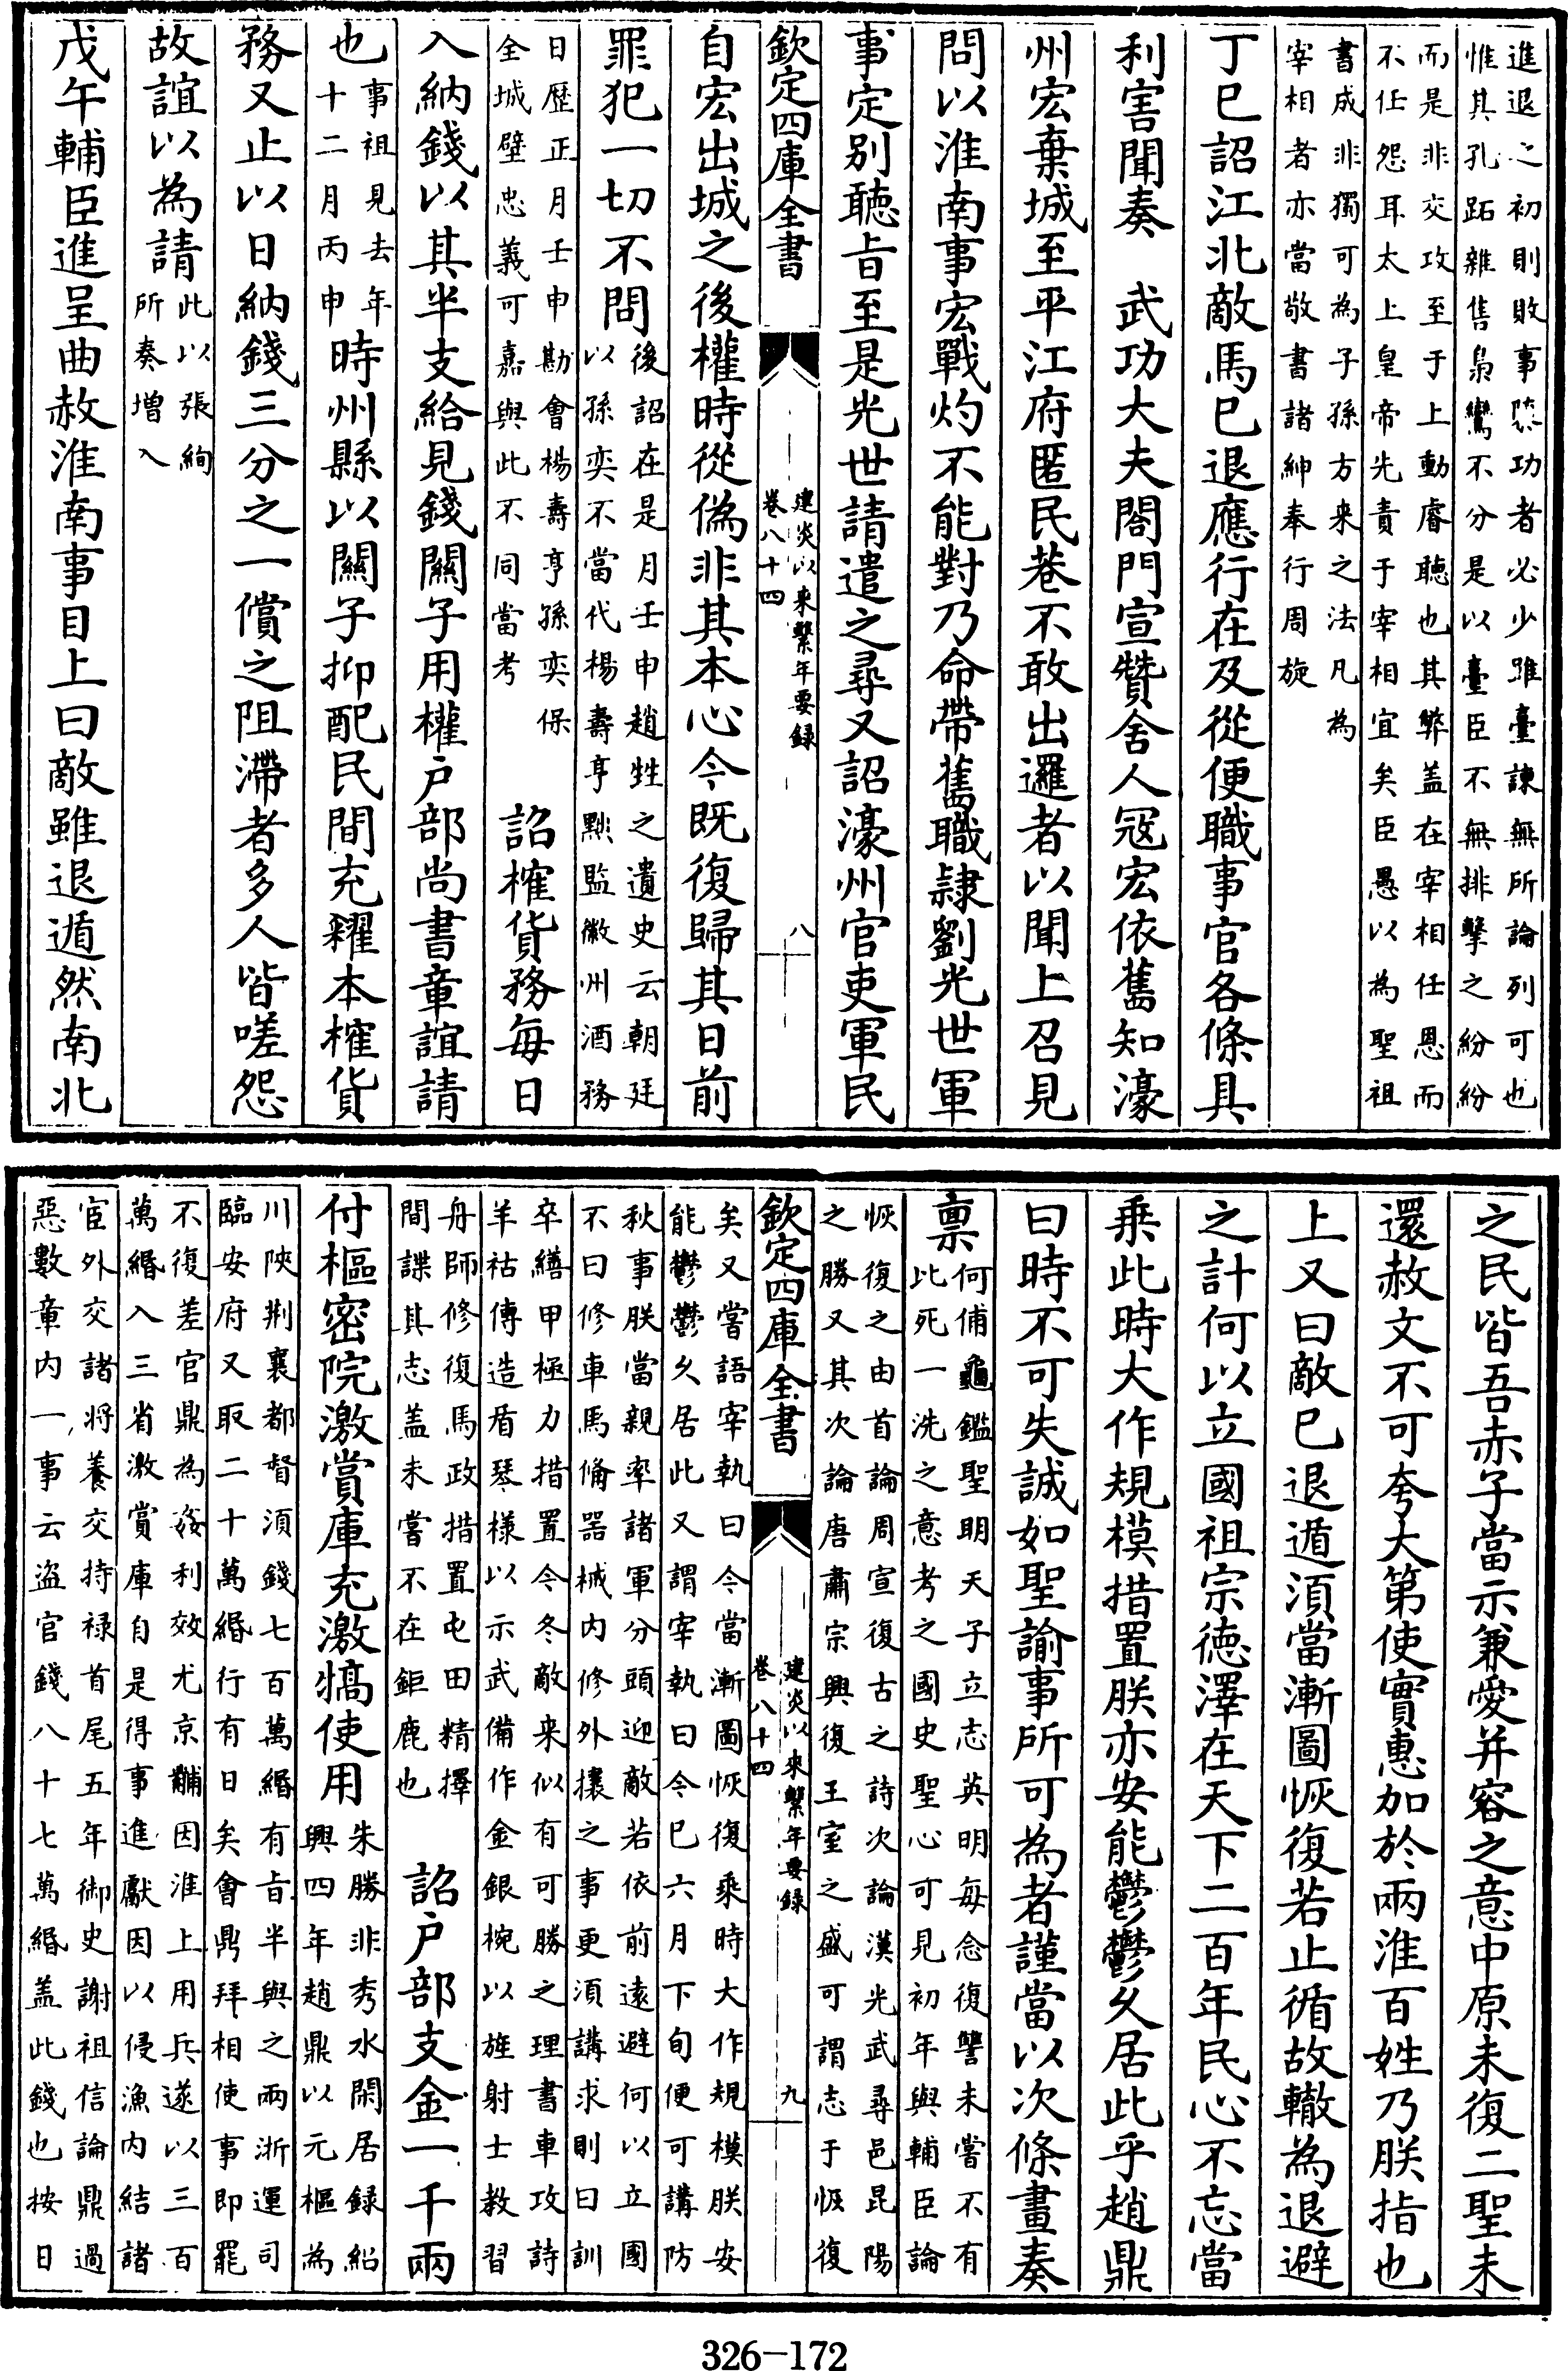 進退之初則敗事隳功者必少雖臺諫無所論列可也
惟其孔跖雜售梟鸞不分是以臺臣不無排擊之紛紛
而是非交攻至于上動睿聽也其弊盖在宰相任恩而
不任怨耳太上皇帝先責于宰相宜矣臣愚以為聖祖
書成非獨可為子孫方来之法凡為
宰相者亦當敬書諸紳奉行周旋
丁巳詔江北敵馬已退應行在及從便職事官各條具
利害聞奏　武功大夫閤門宣贊舍人冦宏依舊知濠
州宏棄城至平江府匿民巷不敢出邏者以聞上召見
問以淮南事宏戰灼不能對乃命帶舊職隷劉光世軍
事定别聽㫖至是光世請遣之尋又詔濠州官吏軍民
欽定四庫全書
建炎以來繫年要録
卷八十四
八
自宏出城之後權時從偽非其本心今既復歸其日前
罪犯一切不問
後詔在是月壬申趙甡之遺史云朝廷
以孫奕不當代楊壽亨㸃監徽州酒務
日歴正月壬申勘會楊壽亨孫奕保
全城壁忠義可嘉與此不同當考
詔榷貨務每日
入納錢以其半支給見錢闗子用權户部尚書章誼請
也
事祖見去年
十二月丙申
時州縣以闗子抑配民間充糴本榷貨
務又止以日納錢三分之一償之阻滯者多人皆嗟怨
故誼以為請
此以張絢
所奏增入
戊午輔臣進呈曲赦淮南事目上曰敵雖退遁然南北
之民皆吾赤子當示兼愛并容之意中原未復二聖未
還赦文不可夸大第使實惠加於兩淮百姓乃朕指也
上又曰敵已退遁須當漸圖恢復若止循故轍為退避
之計何以立國祖宗徳澤在天下二百年民心不忘當
乗此時大作規模措置朕亦安能鬱鬱久居此乎趙鼎
曰時不可失誠如聖諭事所可為者謹當以次條畫奏
禀
何俌龜鑑聖明天子立志英明每念復讐未嘗不有
此死一洗之意考之國史聖心可見初年與輔臣論
恢復之由首論周宣復古之詩次論漢光武尋邑昆陽
之勝又其次論唐肅宗興復王室之盛可謂志于恢復
欽定四庫全書
建炎以來繫年要録
卷八十四
九
矣又嘗語宰執曰今當漸圖恢復乗時大作規模朕安
能鬱鬱久居此又謂宰執曰今已六月下旬便可講防
秋事朕當親率諸軍分頭迎敵若依前逺避何以立國
不曰修車馬備器械内修外攘之事更須講求則曰訓
卒繕甲極力措置今冬敵来似有可勝之理書車攻詩
羊祜傳造盾琴様以示武備作金銀椀以旌射士教習
舟師修復馬政措置屯田精擇
間諜其志盖未嘗不在鉅鹿也
詔户部支金一千兩
付樞密院激賞庫充激犒使用
朱勝非秀水閑居録紹
興四年趙鼎以元樞為
川陜荆襄都督須錢七百萬緡有㫖半與之兩浙運司
臨安府又取二十萬緡行有日矣會鼎拜相使事即罷
不復差官鼎為姦利效尤京黼因淮上用兵遂以三百
萬緡入三省激賞庫自是得事進獻因以侵漁内結諸
宦外交諸將養交持禄首尾五年御史謝祖信論鼎過
惡數章内一事云盗官錢八十七萬緡盖此錢也按日
326-172